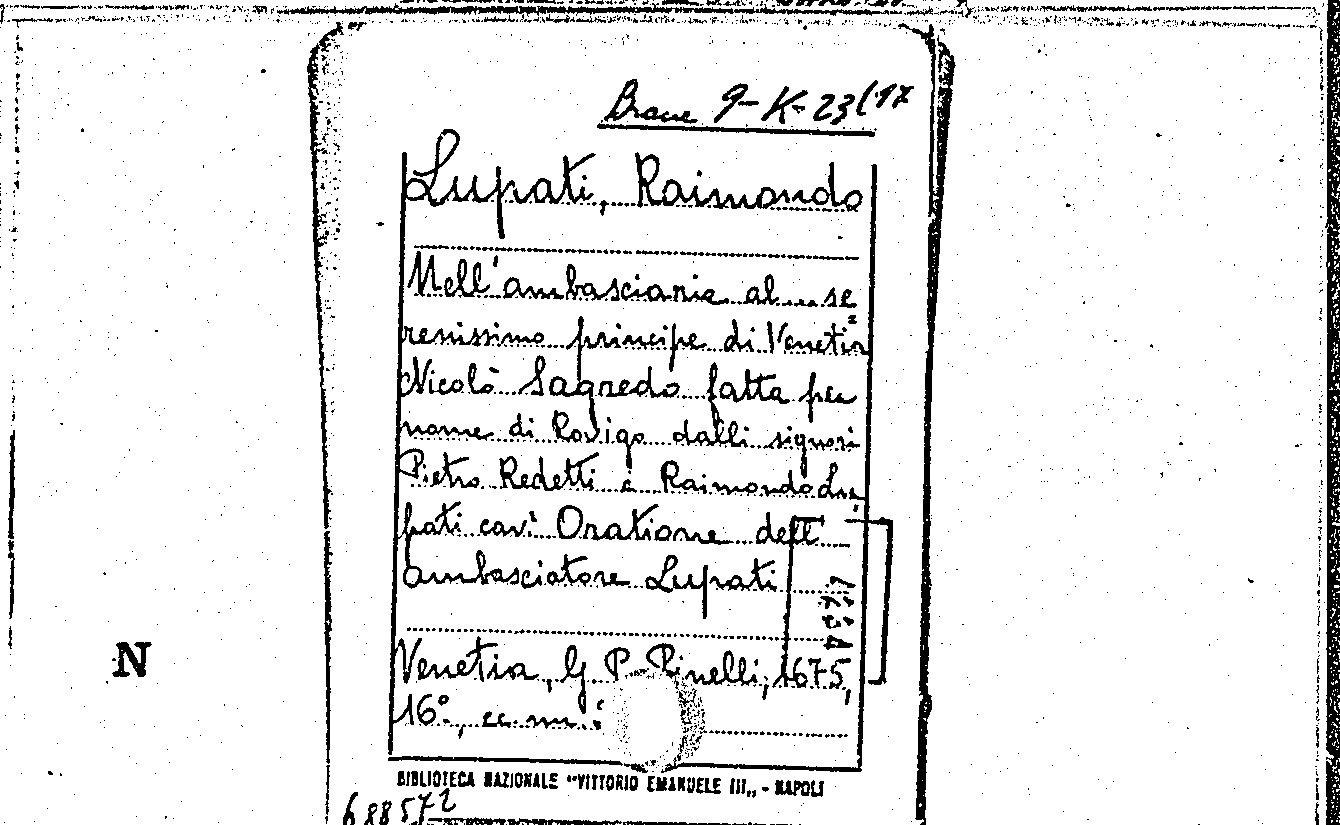 Brane 9-K-23(17
Lupati, Raimondo
Nell'ambascianie al... se
renissimo principe di Venetia
Nicolò Sagredo fatta per
nome di Rovigo dalli signori
Pietro Redetti e Raimondo Lu
pati cavi Oratione dell'
ambasciatore Lupati
Venetia, G P Pinelli, 1675,
16°, cc. nn.
N
BIBLIOTECA NAZIONALE "VITTORIO EMANUELE III" - NAPOLI
688572